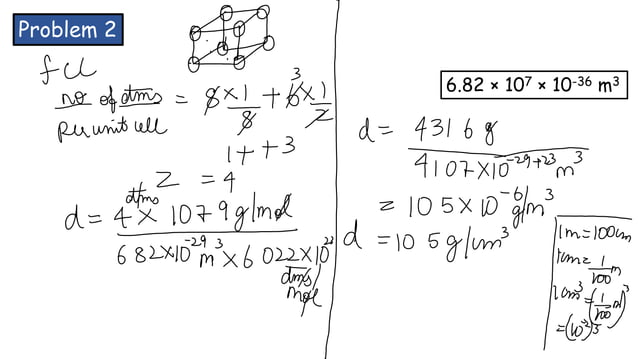 Problem 2
fcc
no of atoms / per unit cell = 8 × 1/8 + 6 × 1/2
3
1 + + 3
Z = 4
d = 4 atoms × 107 9 g/mol
6 82 × 10^-29 m^3 × 6 022 × 10^23
atoms/mol
6.82 × 10^7 × 10^-36 m^3
d = 431 6 g
41 07 × 10^-29+23 m^3
= 10 5 × 10^-6 g/m^3
d = 10 5 g/cm^3
1m = 100cm
1cm = 1/100 m
1cm^3 = (1/100 m)^3
= (10^-2)^3